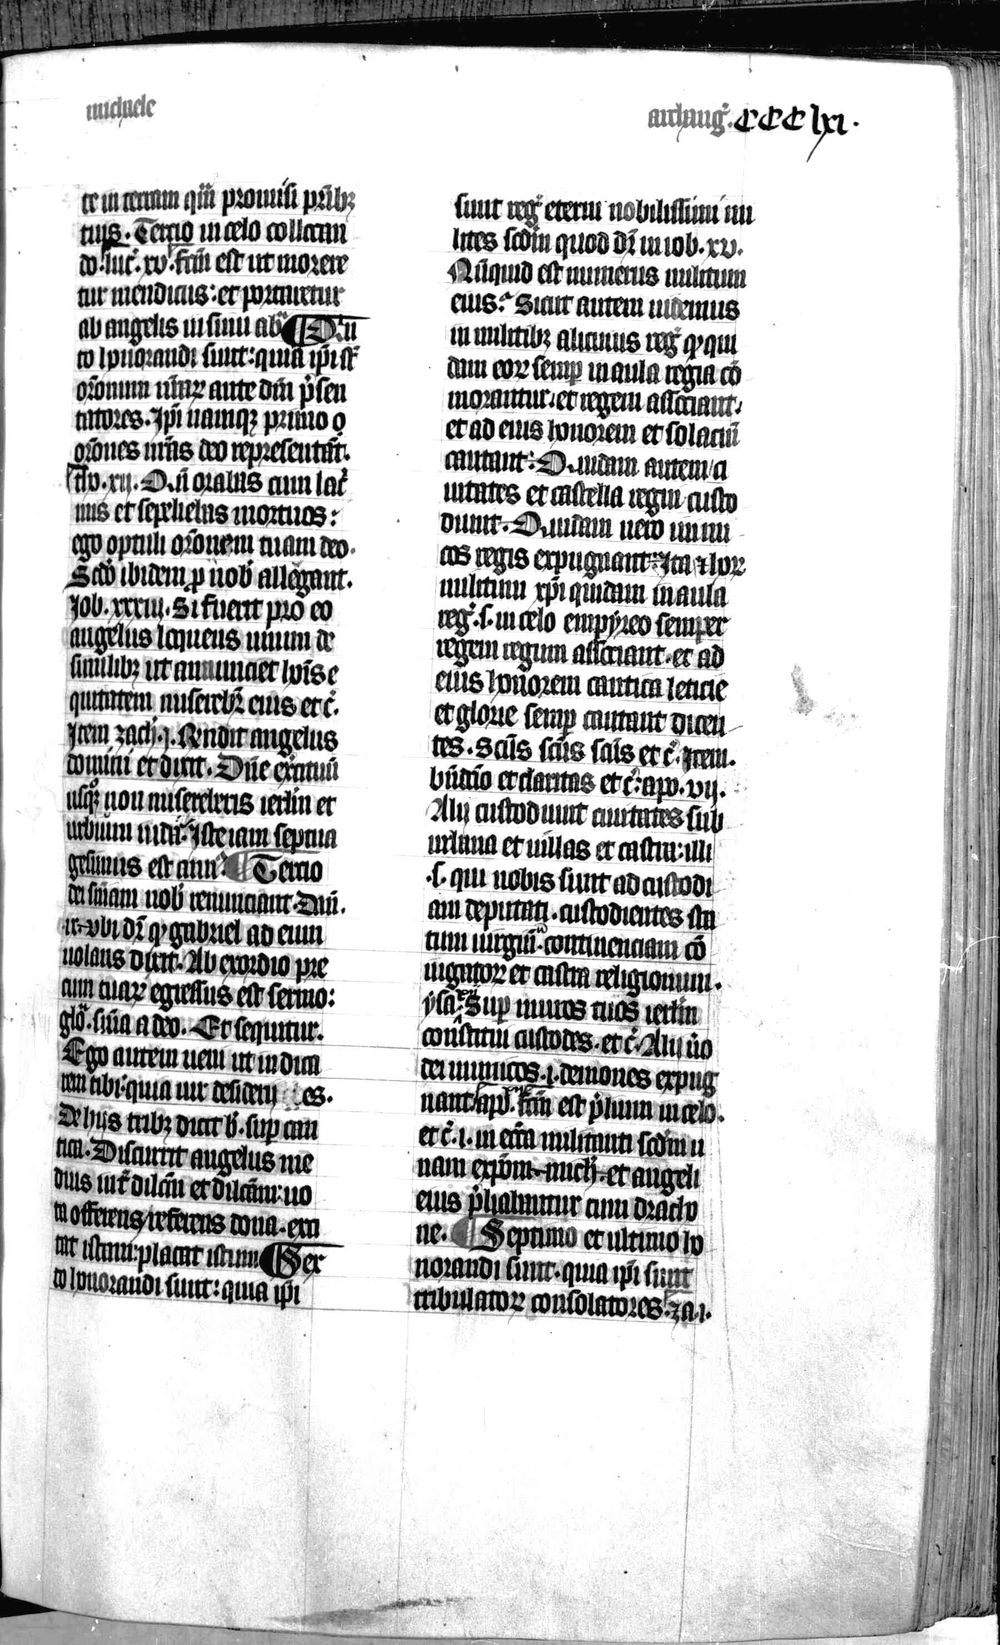 michaele
archang̓. CCClxi.
te in terram qua̅ promisi pr̅ibꝫ
tuis. Tercio in celo collocan
do. luc̓. xv. fcm̅ est ut morere
tur mendicus: et portaretur
ab angelis in sinu ab̓ Qui̅
to honorandi sunt: quia ip̅i st̅
or̅onum nr̅aꝝ ante dm̅ p̓sen
tatores. Ip̅i namqꝫ primo o
or̅ones nr̅as deo representa̅t.
Tho. xii. Qn̅ orabas cum lac̓
mis et sepeliebas mortuos:
ego optuli or̅onem tuam deo.
Scd̅o ibidem ꝓ nob̓ allegant.
Job. xxxiii. Si fuerit pro eo
angelus loquens unum de
similibꝫ ut annunciet ho̅is e
quitatem miserebr̅ eius et c̓.
Item zach. i. Rn̅dit angelus
domini et dixit. Dn̅e exercituu̅
usqꝫ quo non misereberis ierl̅m et
urbium iuda. Iste iam septua
gesimus est ann̓. Tercio
dei sn̅iam nob̓ renunciant. Dan̅.
ix. vbi dr̅ ꝙ gabriel ad eum
uolans dixit. Ab exordio pre
cum tuaꝝ egressus est sermo:
glo̅. sn̅ia a deo. Et sequitur.
Ego autem ueni ut indica
rem tibi: quia uir desiderij es.
De hijs tribꝫ dicit b̓. sup̱ can
tica. Discurrit angelus me
dius int̓ dilc̅m et dilc̅am: uo
ta offerens referens dona. exci
tat istam: placat istum Sex
to honorandi sunt: quia ip̅i
sunt reg̓ eterni nobilissimi mi
lites scd̅m quod dr̅ in iob. xv.
Nu̅quid est numerus militum
eius. Sicut autem uidemus
in militibꝫ alicuius reg̓ ꝙ qui
dam eoꝝ semꝑ in aula regia co̅
morantur. et regem associant.
et ad eius honorem et solaciu̅
cantant: Quidam autem ci
uitates et castella regni custo
diunt. Quidam uero inimi
cos regis expugnant. Ita ⁊ hoꝝ
militum xp̅i quidam in aula
reg̓. s. in celo empyreo semper
regem regum associant. et ad
eius honorem cantica leticie
et glorie semꝑ cantant dicen
tes. Scu̅s scu̅s scu̅s et c̓. Item.
bn̅dc̅io et claritas et c̓. apo. vij.
Alij custodiunt ciuitates sub
urbana et uillas et castra: illi
.s. qui nobis sunt ad custodi
am deputati. custodientes sta
tum uirginu̅. continenciam co̅
iugatoꝝ et castra religionum.
ysa. Suꝑ muros tuos ierl̅m
constitui custodes. et c̓. Alij u̅o
dei inimicos. i. demones expug
nant. apo̅. fcm̅ est p̓lium in celo.
et c̓. i. in ecc̅a militanti scd̅m u
nam expo̅m. mich̓. et angeli
eius p̓liabantur cum draco
ne. Septimo et ultimo ho
norandi sunt. quia ip̅i sunt
tribulatoꝝ consolatores. za. i.